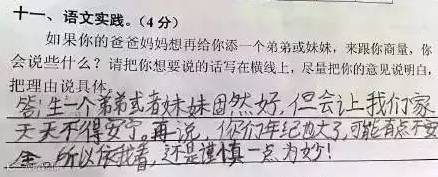 十一、语文实践。(4分)
如果你的爸爸妈妈想再给你添一个弟弟或妹妹，来跟你商量，你
会说些什么？请把你想要说的话写在横线上，尽量把你的意见说明白，
把理由说具体。
答：生一个弟弟或者妹妹固然好，但会让我们家
天天不得安宁。再说，你们年纪也大了，可能有点不安
全，所以依我看，还是谨慎一点为妙！